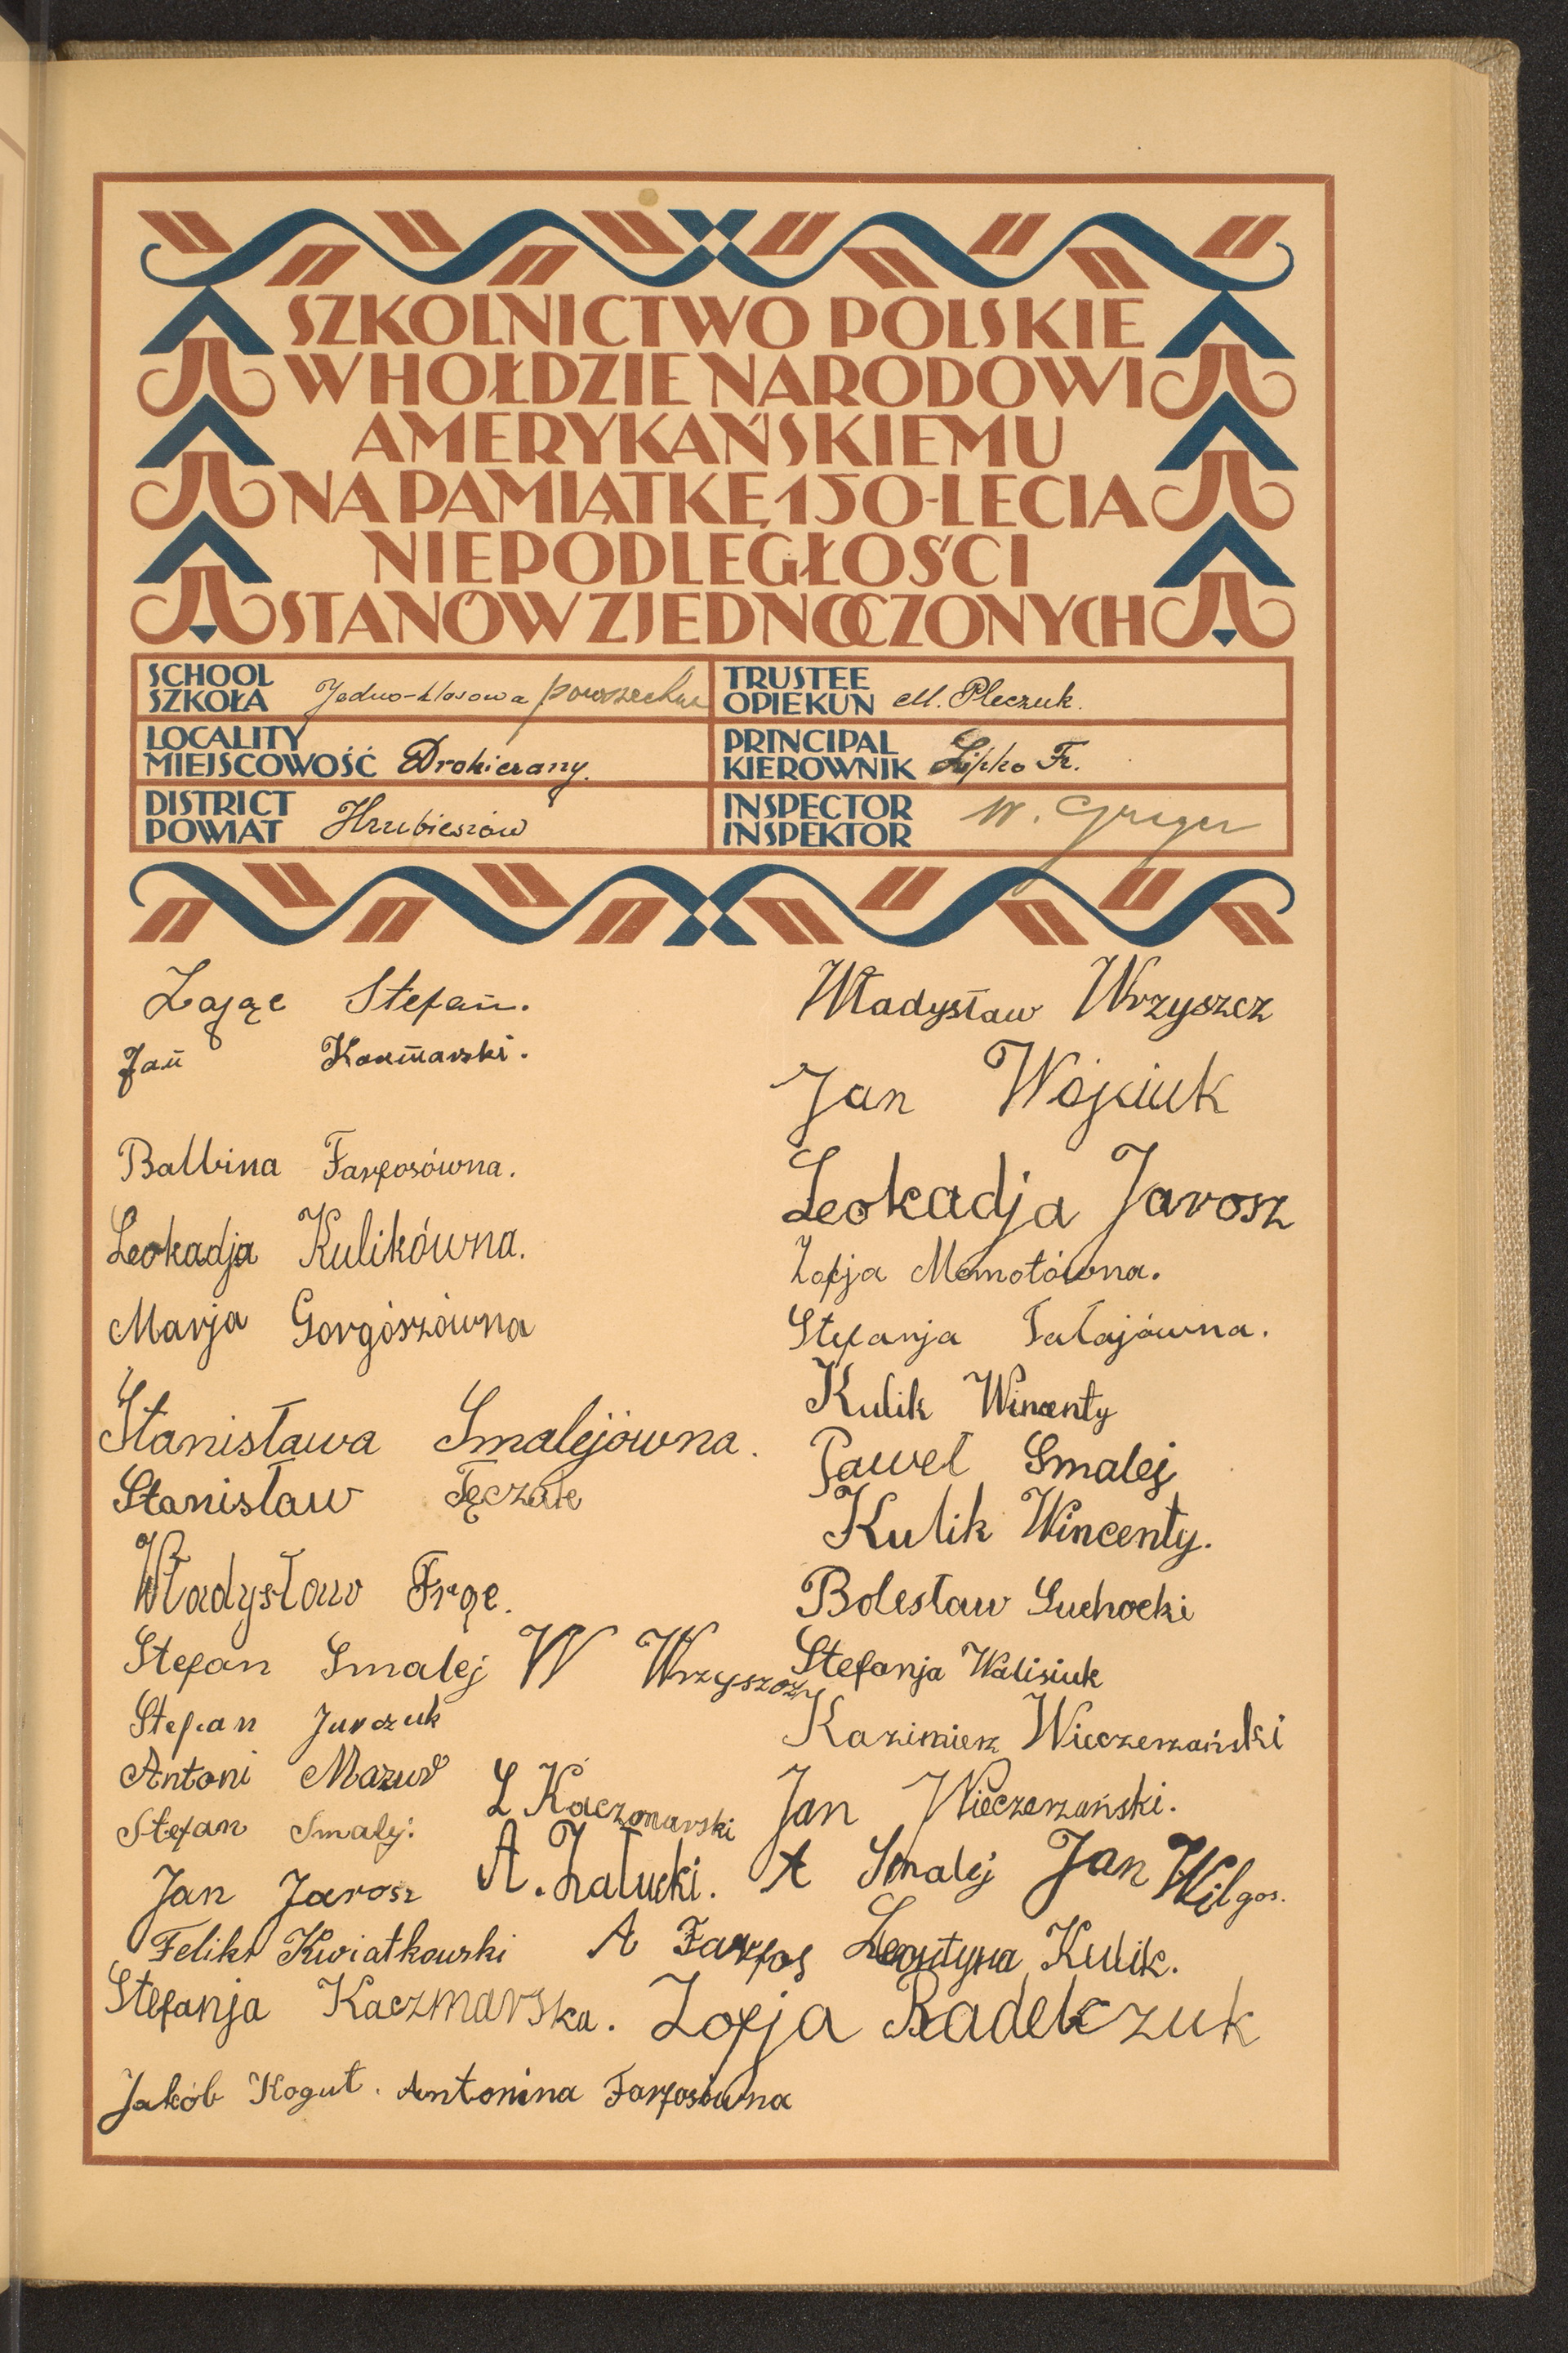 SZKOLNICTWO POLSKIE
W HOŁDZIE NARODOWI
AMERYKAŃSKIEMU
NA PAMIĄTKĘ 150-LECIA
NIEPODLEGŁOŚCI
STANÓW ZJEDNOCZONYCH
SCHOOL
SZKOŁA Jedno-klasowa powszechna
TRUSTEE
OPIEKUN M. Pleczuk.
LOCALITY
MIEJSCOWOŚĆ
PRINCIPAL
KIEROWNIK Lipko Fr.
DISTRICT
POWIAT Hrubieszów
INSPECTOR
INSPEKTOR W.
Zając Stefan.
Jan
Balbina Farfosówna.
Leokadja Kulikówna.
Marja Gorgószówna
Stanisława Smalejówna.
Stanisław
Władysław Frąc.
Stefan Smalej W Wrzyszcz
Stefan Jurczuk
Antoni Mazur
Stefan Smalej. L Kaczmarski
Jan Jarosz A. Załucki.
Felikt Kwiatkowski A Farfos
Stefanja Kaczmarska.
Jakób Kogut. Antonina Farfosówna
Władysław Wrzyszcz
Jan Wójciuk
Leokadja Jarosz
Zofja Momotówna.
Stefanja Tałajówna.
Kulik Wincenty
Paweł Smalej
Kulik Wincenty.
Bolesław Suchocki
Stefanja Walisiuk
Kazimierz Wieczerzański
Jan Wieczerzański.
A Smalej Jan Wilgos.
Leontyna Kulik.
Zofja Radelczuk